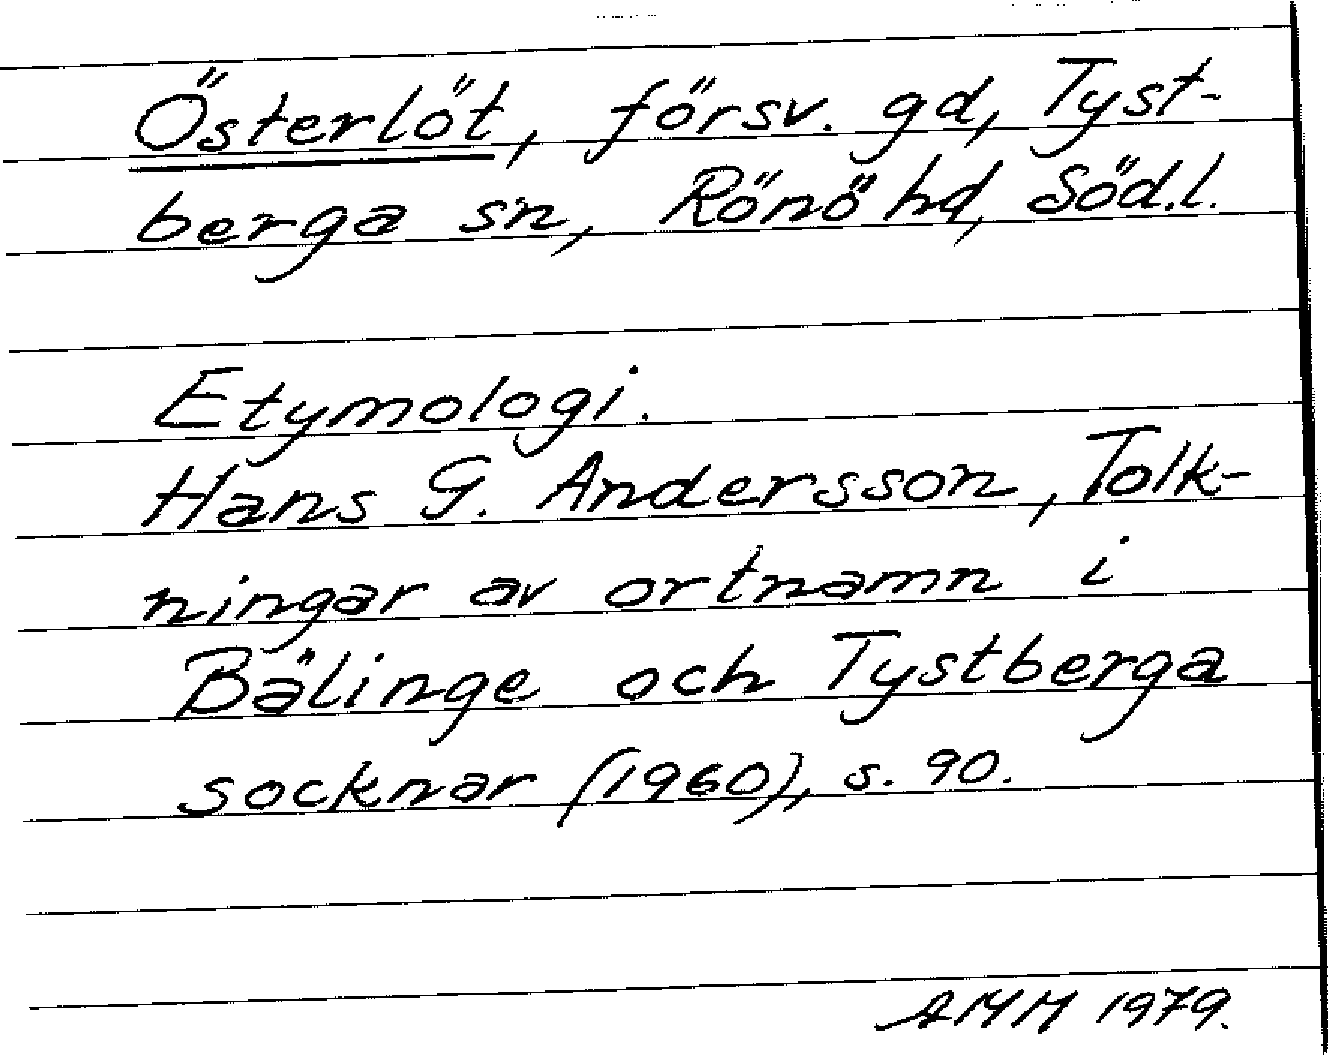 Österlöt, försv. gd, Tyst-
berga sn, Rönö hd, Söd.l.
Etymologi.
Hans G. Andersson, Tolk-
ningar av ortnamn i
Bälinge och Tystberga
socknar (1960), s. 90.
AMM 1979.